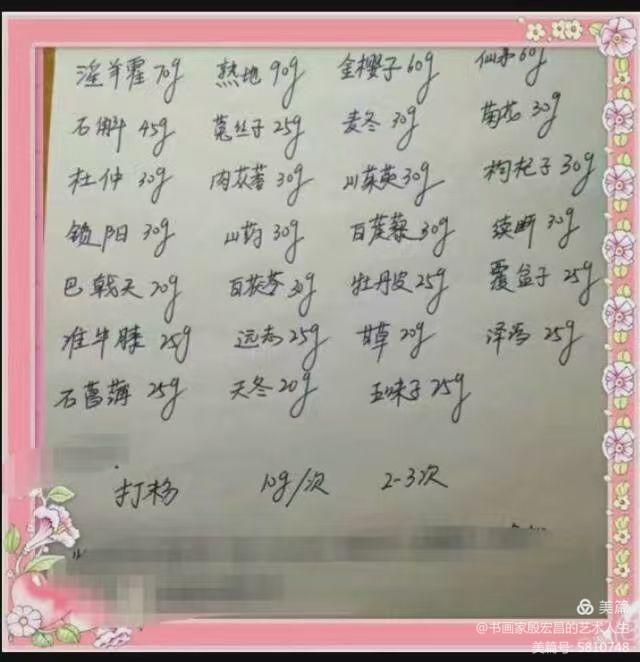 淫羊藿 70g 熟地 90g 金樱子 60g 仙茅 60g
石斛 45g 菟丝子 25g 麦冬 30g 菊花 30g
杜仲 30g 肉苁蓉 30g 山茱萸 30g 枸杞子 30g
锁阳 30g 山药 30g 30g 续断 30g
巴戟天 20g 百茯苓 30g 牡丹皮 25g 覆盆子 25g
准牛膝 25g 远志 25g 甘草 20g 泽泻 25g
石菖蒲 25g 天冬 20g 五味子 25g
打粉 10g/次 2-3次
美篇
@书画家殷宏昌的艺术人生
美篇号: 5810748